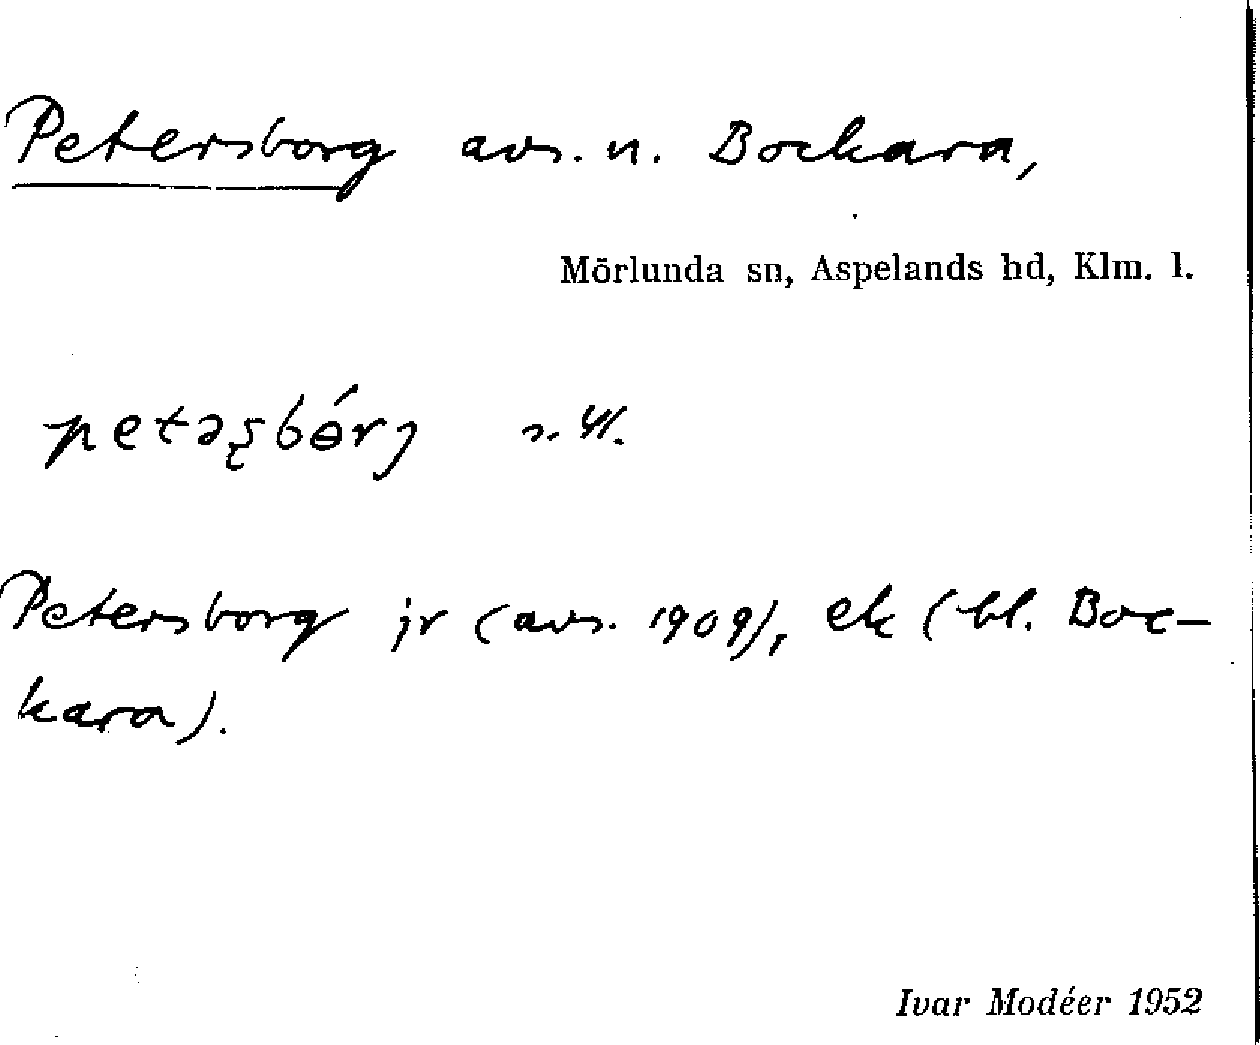 Petersborg avs. n. Bockara,
Mörlunda sn, Aspelands hd, Klm. l.
petəʂbɵ́rj
Petersborg jr (avs. 1909), ek (bl. Boc-
kara).
Ivar Modéer 1952